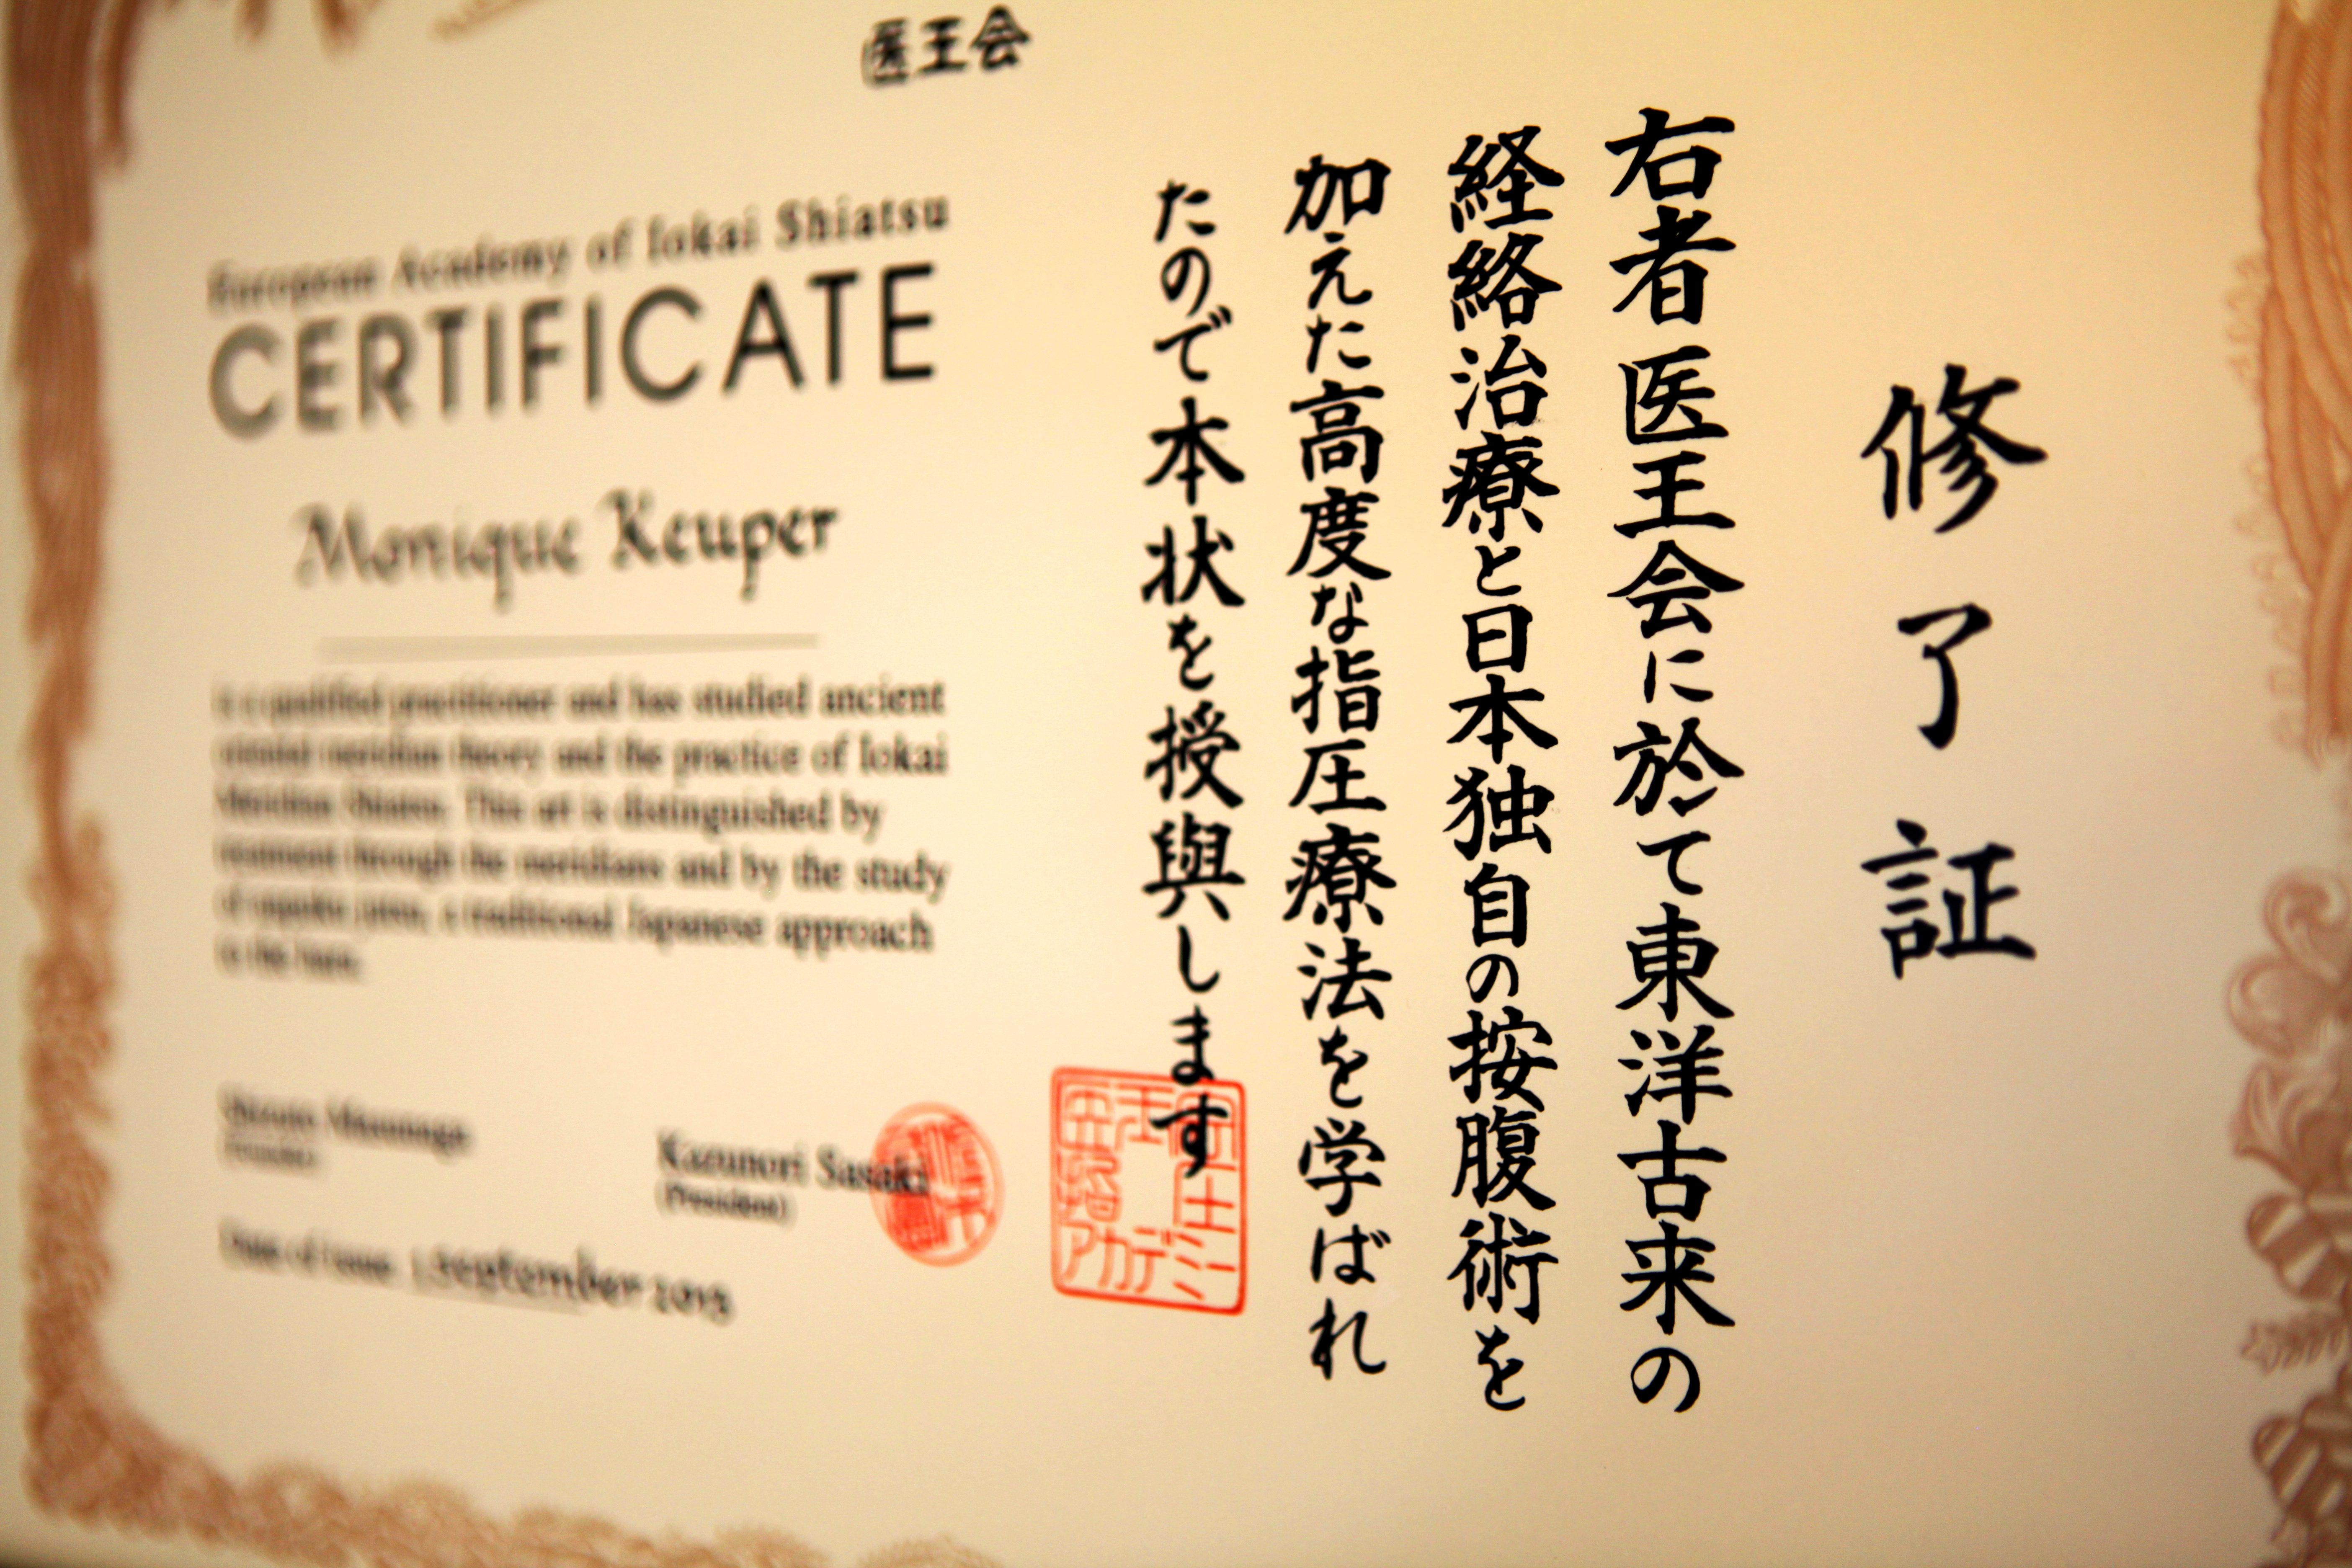 医王会
European Academy of Iokai Shiatsu
CERTIFICATE
Monique Keuper
is a qualified practitioner and has studied ancient
oriental meridian theory and the practice of Iokai
Meridian Shiatsu. This art is distinguished by
treatment through the meridians and by the study
of ampuku jutsu, a traditional Japanese approach
to the hara.
Shizuto Masunaga
(Founder)
Kazunori Sasaki
(President)
Date of issue. 1 September 2015
修了証
右者医王会に於て東洋古来の
経絡治療と日本独自の按腹術を
加えた高度な指圧療法を学ばれ
たので本状を授與します